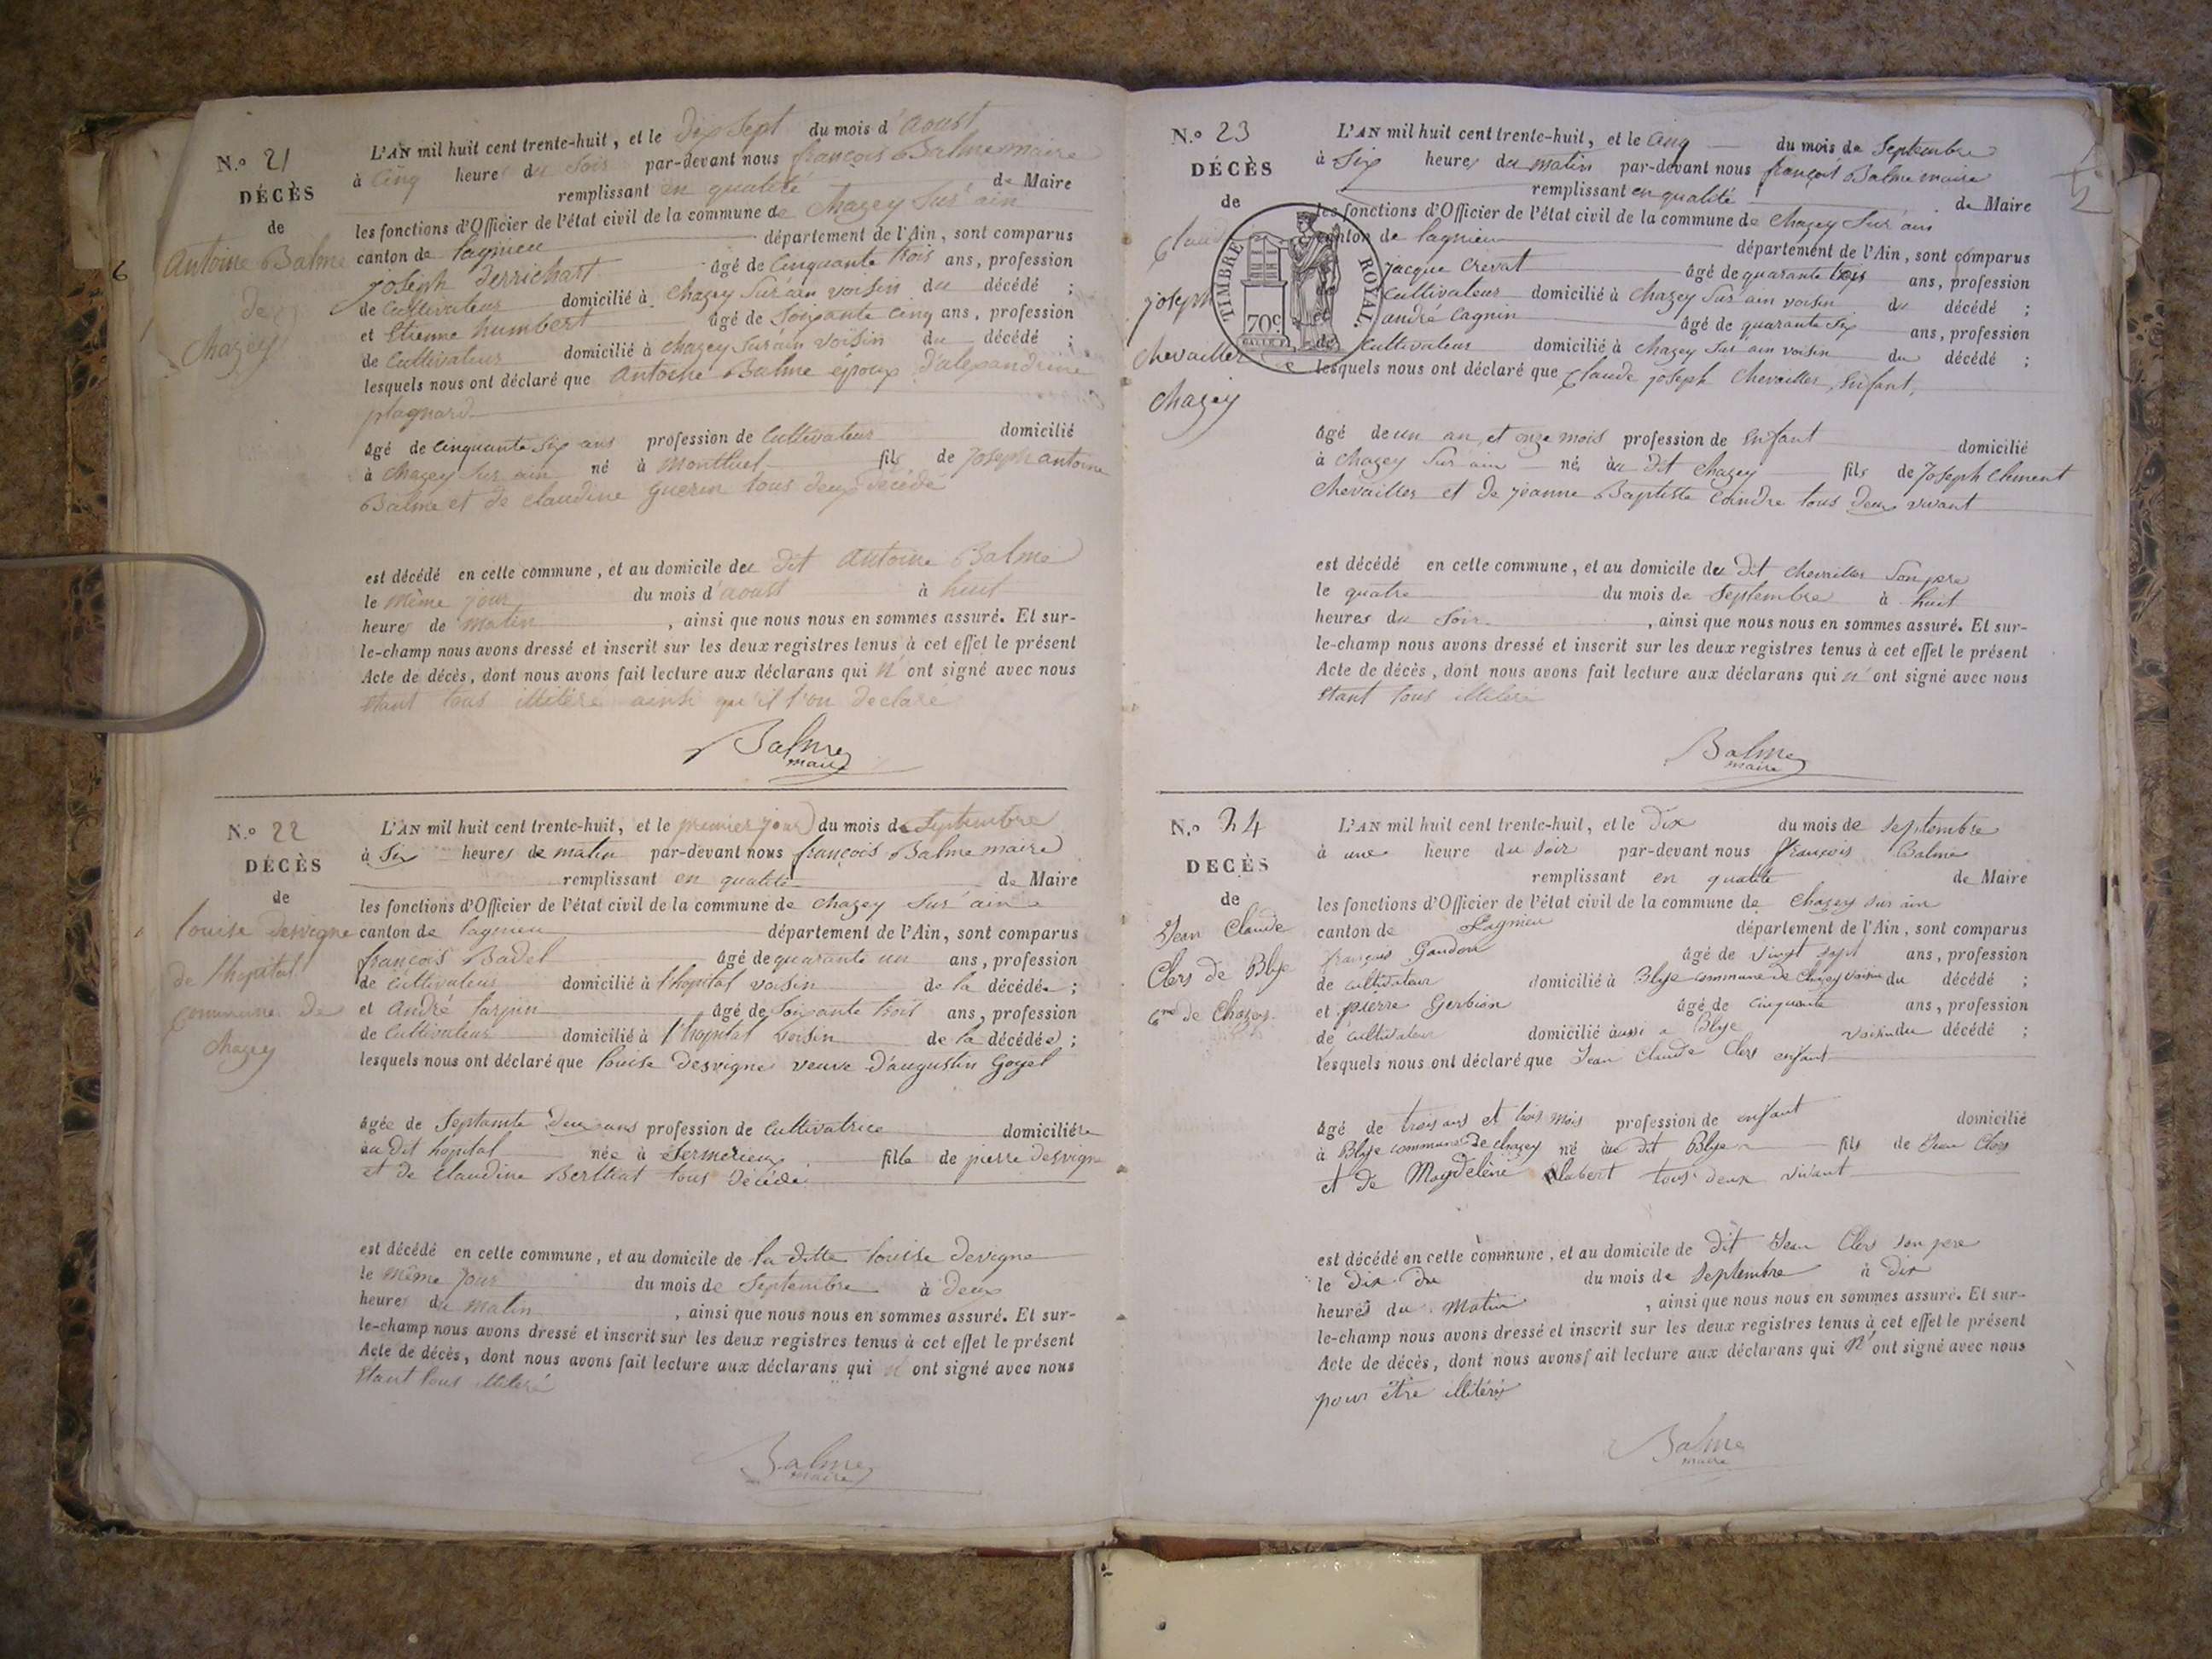 N.o 21
DÉCÈS
de
Antoine Balme
de
Chazey
L'AN mil huit cent trente-huit, et le dix sept du mois d'aoust
à cinq heures du soir par-devant nous françois Balme maire
remplissant en qualité de Maire
les fonctions d'Officier de l'état civil de la commune de Chazey Sur ain
canton de lagnieu département de l'Ain, sont comparus
joseph derrichart âgé de Cinquante trois ans, profession
de Cultivateur domicilié à Chazey Sur ain voisin du décédé ;
et Etienne humbert âgé de Soixante Cinq ans, profession
de Cultivateur domicilié à chazey sur ain voisin du décédé ;
lesquels nous ont déclaré que Antoine Balme époux d'alexandrine
plagnard
âgé de cinquante six ans profession de Cultivateur domicilié
à Chazey Sur ain né à Montluel fils de Joseph antoine
Balme et de claudine guerin tous deux décédé
est décédé en cette commune, et au domicile du dit Antoine Balme
le même jour du mois d'aoust à huit
heures de matin , ainsi que nous nous en sommes assuré. Et sur-
le-champ nous avons dressé et inscrit sur les deux registres tenus à cet effet le présent
Acte de décès, dont nous avons fait lecture aux déclarans qui n'ont signé avec nous
etant tous illitéré ainsi qu'il l'on déclaré
Balme
maire
N.o 22
DÉCÈS
de
louise desvigne
de l'hopital
commune de
Chazey
L'AN mil huit cent trente-huit, et le premier jour du mois de Septembre
à Six heures de matin par-devant nous françois Balme maire
remplissant en qualité de Maire
les fonctions d'Officier de l'état civil de la commune de chazey Sur ain
canton de lagnieu département de l'Ain, sont comparus
françois Badel âgé de quarante un ans, profession
de Cultivateur domicilié à l'hopital voisin de la décédée ;
et andré farjon âgé de Soixante trois ans, profession
de Cultivateur domicilié à l'hopital voisin de la décédée ;
lesquels nous ont déclaré que louise desvigne veuve d'augustin goyet
âgée de Septante deux ans profession de Cultivatrice domiciliée
au dit hopital née à Sermerieux fille de pierre desvigne
et de Claudine Berthat tous décédé
est décédé en cette commune, et au domicile de la ditte louise devigne
le même jour du mois de Septembre à deux
heures de matin , ainsi que nous nous en sommes assuré. Et sur-
le-champ nous avons dressé et inscrit sur les deux registres tenus à cet effet le présent
Acte de décès, dont nous avons fait lecture aux déclarans qui n'ont signé avec nous
etant tous illitéré
Balme
maire
N.o 23
DÉCÈS
de
Claude
joseph
chevailler
chazey
TIMBRE ROYAL.
70c
L'AN mil huit cent trente-huit, et le cinq du mois de Septembre
à Six heures du matin par-devant nous françois Balme maire
remplissant en qualité de Maire
les fonctions d'Officier de l'état civil de la commune de Chazey Sur ain
canton de lagnieu département de l'Ain, sont comparus
jacque crevat âgé de quarante trois ans, profession
Cultivateur domicilié à Chazey Sur ain voisin du décédé ;
et andré Cagnin âgé de quarante Six ans, profession
de Cultivateur domicilié à Chazey Sur ain voisin du décédé ;
lesquels nous ont déclaré que Claude joseph Chevailler, enfant,
âgé de un an, et onze mois profession de enfant domicilié
à Chazey Sur ain né au dit Chazey fils de Joseph Clement
Chevailler et de jeanne Baptiste Coindre tous deux vivant
est décédé en cette commune, et au domicile du dit chevailler Son pere
le quatre du mois de Septembre à huit
heures du Soir , ainsi que nous nous en sommes assuré. Et sur-
le-champ nous avons dressé et inscrit sur les deux registres tenus à cet effet le présent
Acte de décès, dont nous avons fait lecture aux déclarans qui n'ont signé avec nous
etant tous illitéré
Balme
maire
N.o 24
DECÈS
de
Jean Claude
Clers de Blye
Cne de Chazey
L'AN mil huit cent trente-huit, et le Dix du mois de Septembre
à une heure du Soir par-devant nous françois Balme
remplissant en qualité de Maire
les fonctions d'Officier de l'état civil de la commune de Chazey sur ain
canton de Lagnieu département de l'Ain, sont comparus
françois Gaudon âgé de vingt sept ans, profession
de cultivateur domicilié à Blye commune de Chazey voisin du décédé ;
et pierre Gerbian âgé de cinquante ans, profession
de cultivateur domicilié aussi a Blye voisin du décédé ;
lesquels nous ont déclaré que Jean Claude Clers enfant
âgé de trois ans et trois mois profession de enfant domicilié
à Blye commune de chazey né au dit Blye fils de Jean Clers
et de Magdeleine tous deux vivant
est décédé en cette commune, et au domicile de dit Jean Clers son pere
le dix du du mois de Septembre à dix
heures du Matin , ainsi que nous nous en sommes assuré. Et sur-
le-champ nous avons dressé et inscrit sur les deux registres tenus à cet effet le présent
Acte de décès, dont nous avons fait lecture aux déclarans qui n'ont signé avec nous
pour être illitérés
Balme
maire